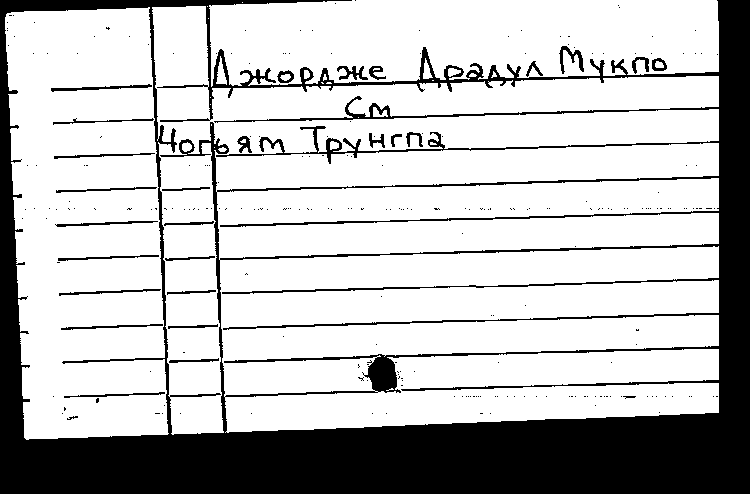 Джордже Драдул Мукпо
См
Чогьям Трунгпа